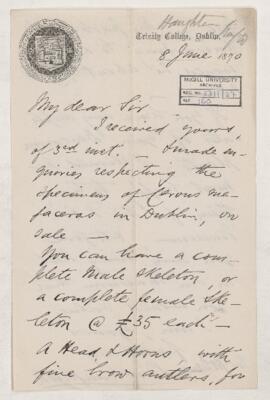 Haughton
Trinity College, Dublin.
8 June 1890
McGILL UNIVERSITY
ARCHIVES
ACC. NO.
REF.
My dear Sir
I received yours,
of 3rd inst. I made in-
quiries respecting the
specimens of Cervus me-
gaceras in Dublin, on
sale —
You can have a com-
plete Male Skeleton, or
a complete female Ske-
leton @ £35 each —
A Head & Horns with
fine brow antlers, for